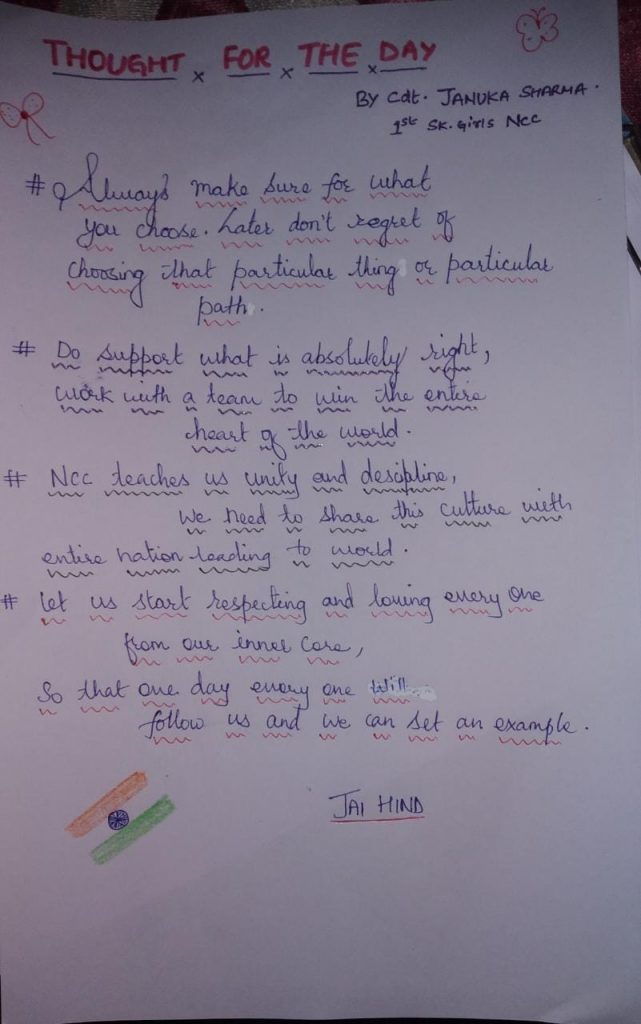 THOUGHT x FOR x THE x DAY
BY Cdt. JANUKA SHARMA.
1st SK. Girls NCC
# Always make sure for what
you choose. Later don't regret of
choosing that particular thing or particular
path.
# Do support what is absolutely right,
work with a team to win the entire
heart of the world.
# NCC teaches us unity and descipline,
We need to share this culture with
entire nation leading to world.
# let us start respecting and loving every one
from our inner core,
So that one day every one will
follow us and we can set an example.
JAI HIND